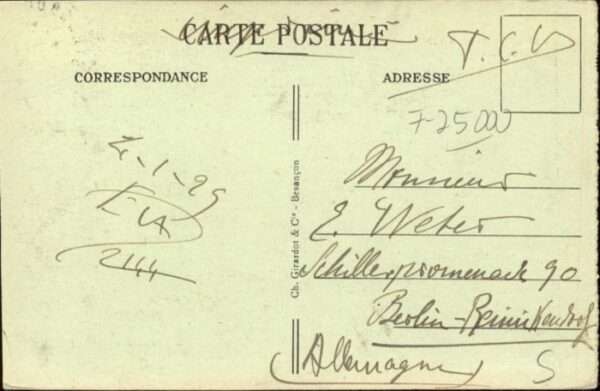 CARTE POSTALE
T.C.V
CORRESPONDANCE
ADRESSE
7-25000
4-1-29
2144
Ch. Girardot & Cie - Besançon
Monsieur
E. Weber
Schillerpromenade 90
Berlin-Reinickendorf
(Allemagne)
S